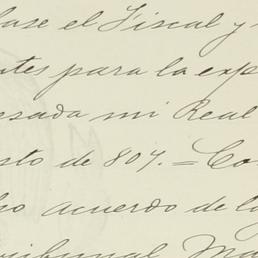 fase el Fiscal y
ntes para la exp
esada mi Real
sto de 807. = Co
ho acuerdo de la
Tribunal Ma